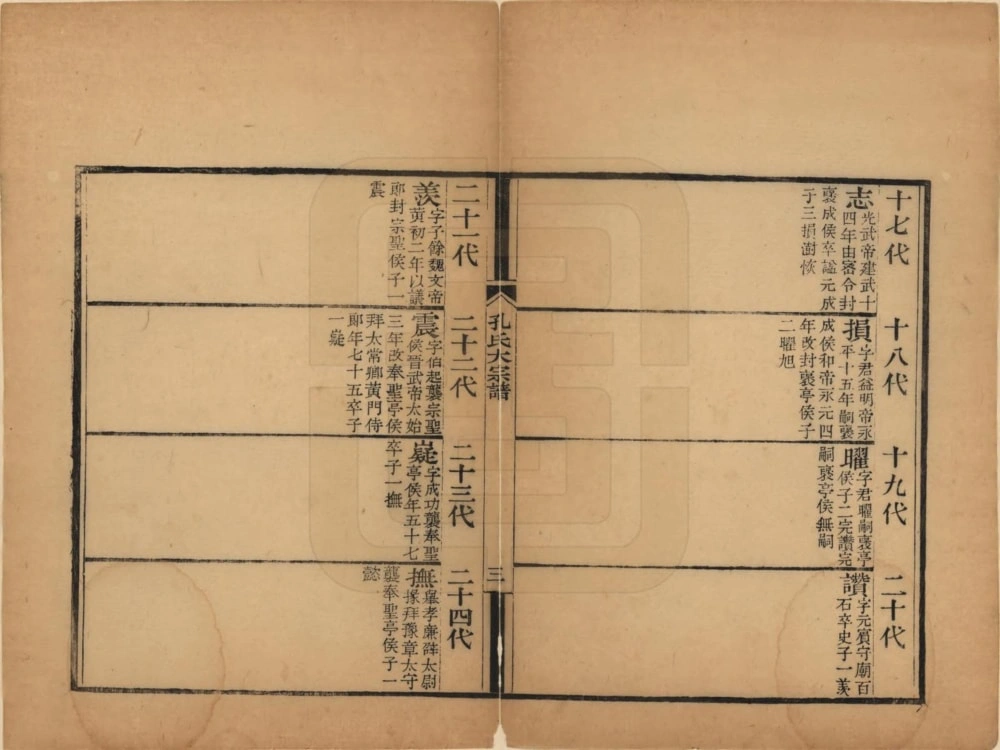 十七代
志
光武帝建武十
四年由密令封
襃成侯卒諡元成
子三損澍恢
十八代
損
字君益明帝永
平十五年嗣襃
成侯和帝永元四
年改封襃亭侯子
二曜旭
十九代
曜
字君曜嗣襃亭
侯子二完讚完
嗣襃亭侯無嗣
二十代
讚
字元賓守廟百
石卒史子一羨
孔氏大宗譜
三
二十一代
羨
字子餘魏文帝
黃初二年以議
郎封宗聖侯子一
震
二十二代
震
字伯起襲宗聖
侯晉武帝太始
三年改奉聖亭侯
拜太常卿黃門侍
郎年七十五卒子
一嶷
二十三代
嶷
字成功襲奉聖
亭侯年五十七
卒子一撫
二十四代
撫
舉孝廉辟太尉
掾拜豫章太守
襲奉聖亭侯子一
懿